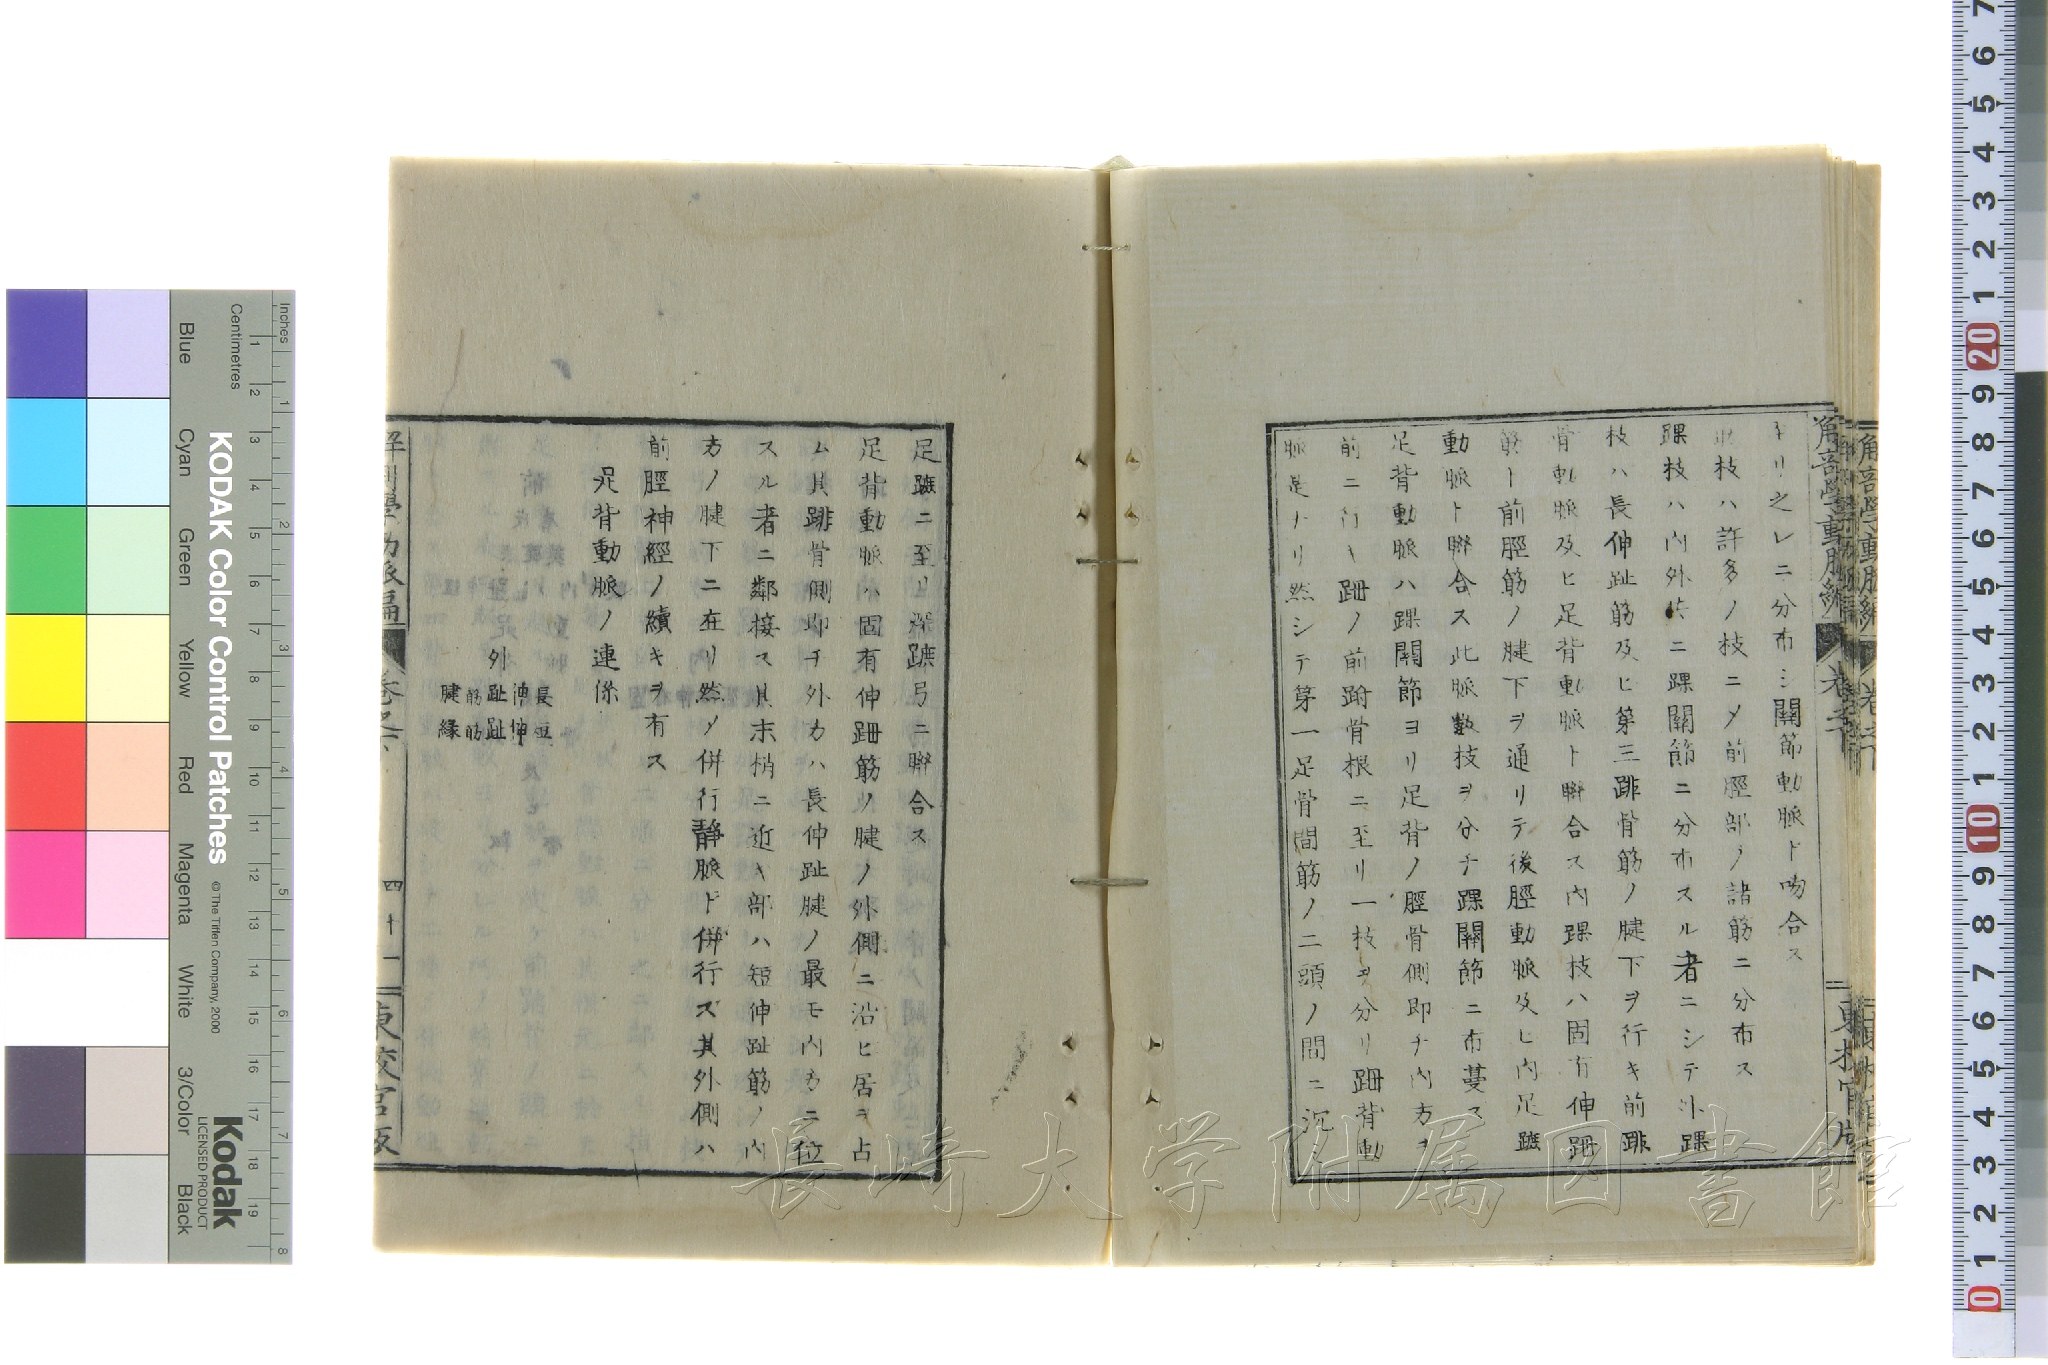 至リ之レニ分布シ關節動脈ト吻合ス
此枝ハ許多ノ枝ニ〆前脛部ノ諸筋ニ分布ス
踝枝ハ內外共ニ踝關節ニ分布スル者ニシテ外踝
枝ハ長伸趾筋及ヒ第三跳骨筋ノ腱下ヲ行キ前跳
骨動脈及ヒ足背動脈ト聨合ス內踝枝ハ固有伸𧿹
筋ト前脛筋ノ腱下ヲ通リテ後脛動脈及ヒ內足蹠
動脈ト聨合ス此脈數枝ヲ分チ踝關節ニ布蔓ス
足背動脈ハ踝關節ヨリ足背ノ脛骨側即チ內方ヲ
前ニ行キ𧿹ノ前跗骨根ニ至リ一枝ヲ分リ𧿹背動
脈是ナリ然シテ第一足骨間筋ノ二頭ノ間ニ沉シ
足蹠ニ至リ深蹠弓ニ聨合ス
足背動脈ハ固有伸𧿹筋ノ腱ノ外側ニ沿ヒ居ヲ占
ム其跳骨側即チ外方ハ長伸趾腱ノ最モ內方ニ位
スル者ニ鄰接ス其末梢ニ近キ部ハ短伸趾筋ノ內
方ノ腱下ニ在リ然〆併行靜脈ト併行ス其外側ハ
前脛神經ノ續キヲ有ス
足背動脈ノ連係
外
長伸趾筋腱
短伸趾筋緣
解剖學動脈編
卷之六
四十一
東校官版
KODAK Color Control Patches
© The Tiffen Company, 2000
Kodak
LICENSED PRODUCT
Inches
Centimetres
Blue
Cyan
Green
Yellow
Red
Magenta
White
3/Color
Black
長崎大学附属図書館